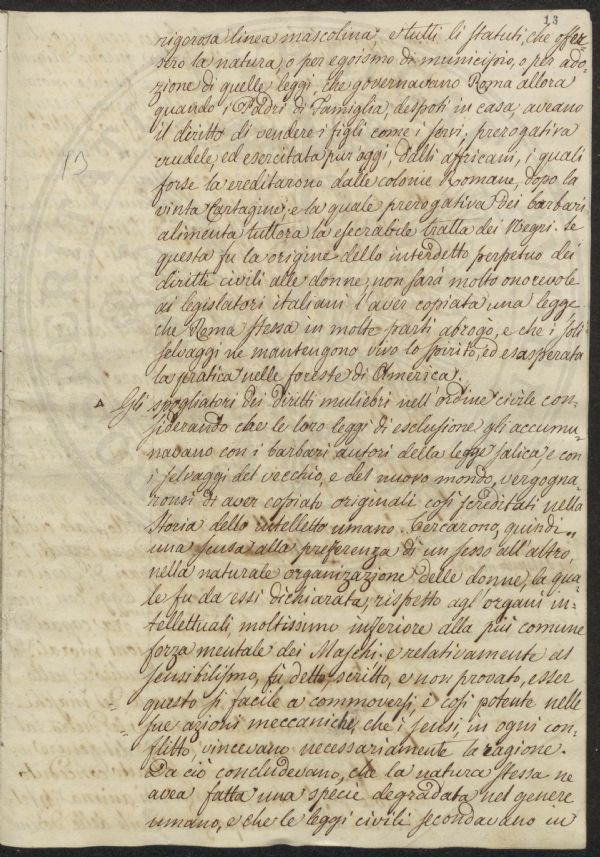 13
rigorosa linea mascolina, e tutti li statuti, che offer=
sero la natura, o per egoismo di municipio, o per ado=
zione di quelle leggi, che governavano Roma allora
quando i Padri di Famiglia, despoti in casa, aveano
il diritto di vendere i figli come i servi: prerogativa
crudele, ed esercitata pur oggi, dalli affricani, i quali
forse la ereditarono dalle colonie Romane, dopo la
vinta Cartagine; e la quale prerogativa dei barbari
alimenta tuttora la esecrabile tratta dei Negri. Se
questa fu la origine dello interdetto perpetuo dei
diritti civili alle donne, non sarà molto onorevole
ai legislatori italiani l'aver copiata una legge
che Roma stessa in molte parti abrogò, e che i soli
selvaggi ne mantengono vivo lo spirito, ed esasperata
la pratica nelle foreste di America.
Gli spogliatori dei diritti muliebri nell'ordine civile con=
siderando che le loro leggi di esclusione gli accumu=
navano con i barbari autori della legge salica, e con
i selvaggi del vecchio, e del nuovo mondo, vergogna=
ronsi di aver copiato originali così screditati nella
storia dello intelletto umano. Cercarono, quindi
una scusa alla preferenza di un sesso all'altro,
nella naturale organizazione delle donne, la qua=
le fu da essi dichiarata, rispetto agl'organi in=
tellettuali, moltissimo inferiore alla più comune
forza mentale dei Maschi: e relativamente al
sensibilismo, fù detto, scritto, e non provato, esser
questo sì facile a commoversi, e così potente nelle
sue azioni meccaniche, che i sensi, in ogni con=
flitto, vincevano necessariamente la ragione.
Da ciò concludevano, che la natura stessa ne
avea fatta una specie degradata nel genere
umano, e che le leggi civili secondavano in
13